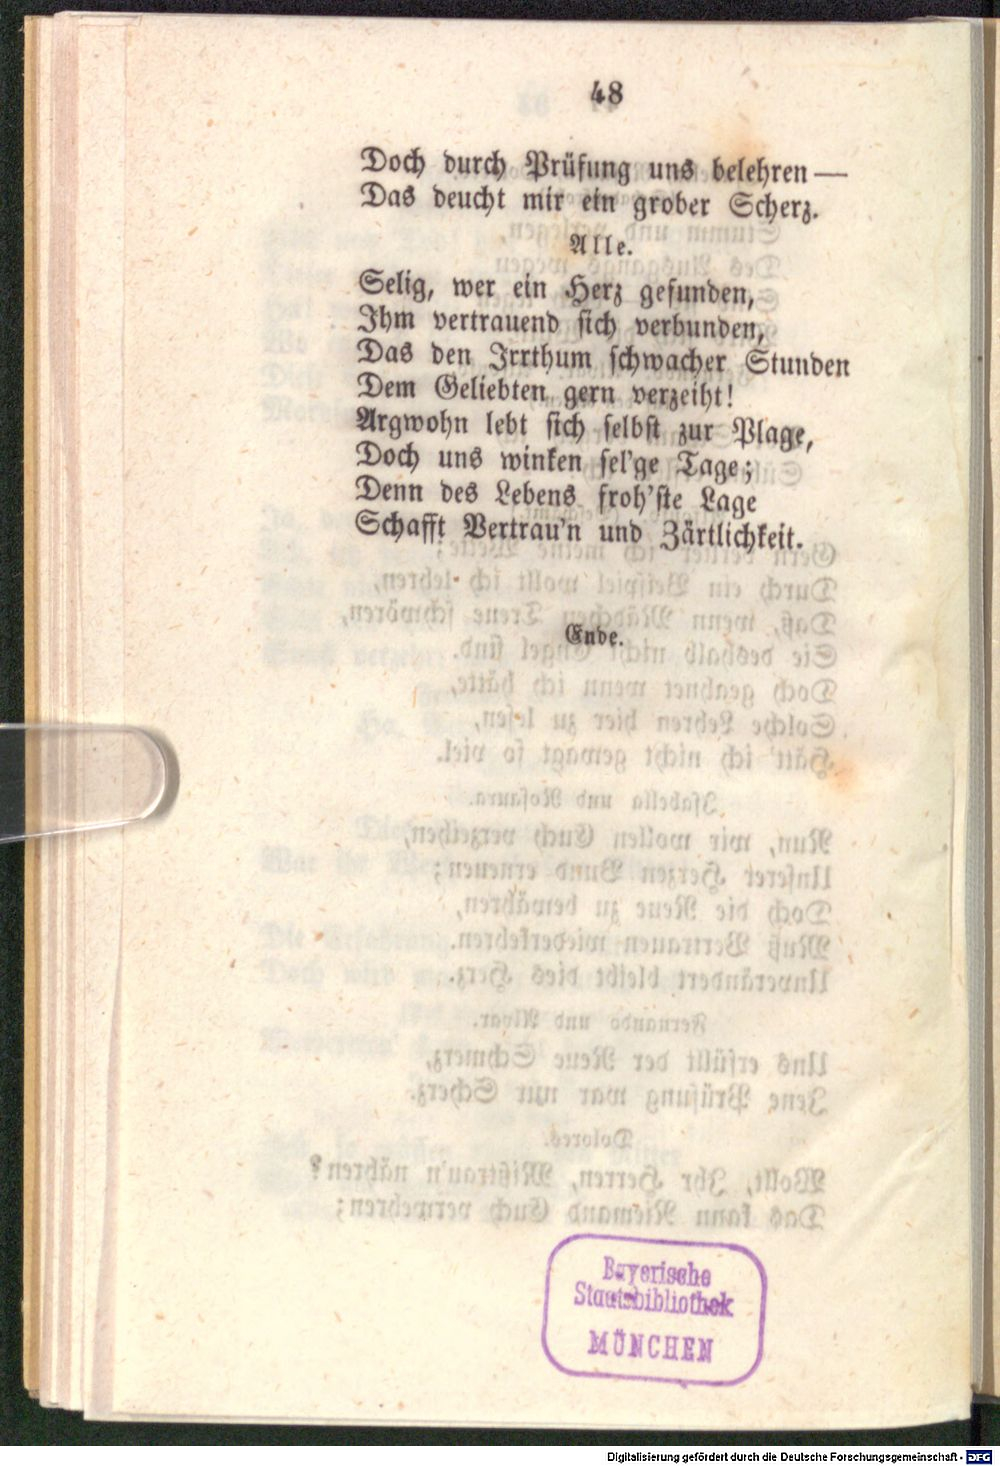 48
Doch durch Prüfung uns belehren —
Das deucht mir ein grober Scherz.
Alle.
Selig, wer ein Herz gefunden,
Ihm vertrauend sich verbunden,
Das den Irrthum schwacher Stunden
Dem Geliebten gern verzeiht!
Argwohn lebt sich selbst zur Plage,
Doch uns winken sel'ge Tage;
Denn des Lebens froh'ste Lage
Schafft Vertrau'n und Zärtlichkeit.
Ende.
Bayerische
Staatsbibliothek
MÜNCHEN
Digitalisierung gefördert durch die Deutsche Forschungsgemeinschaft - DFG